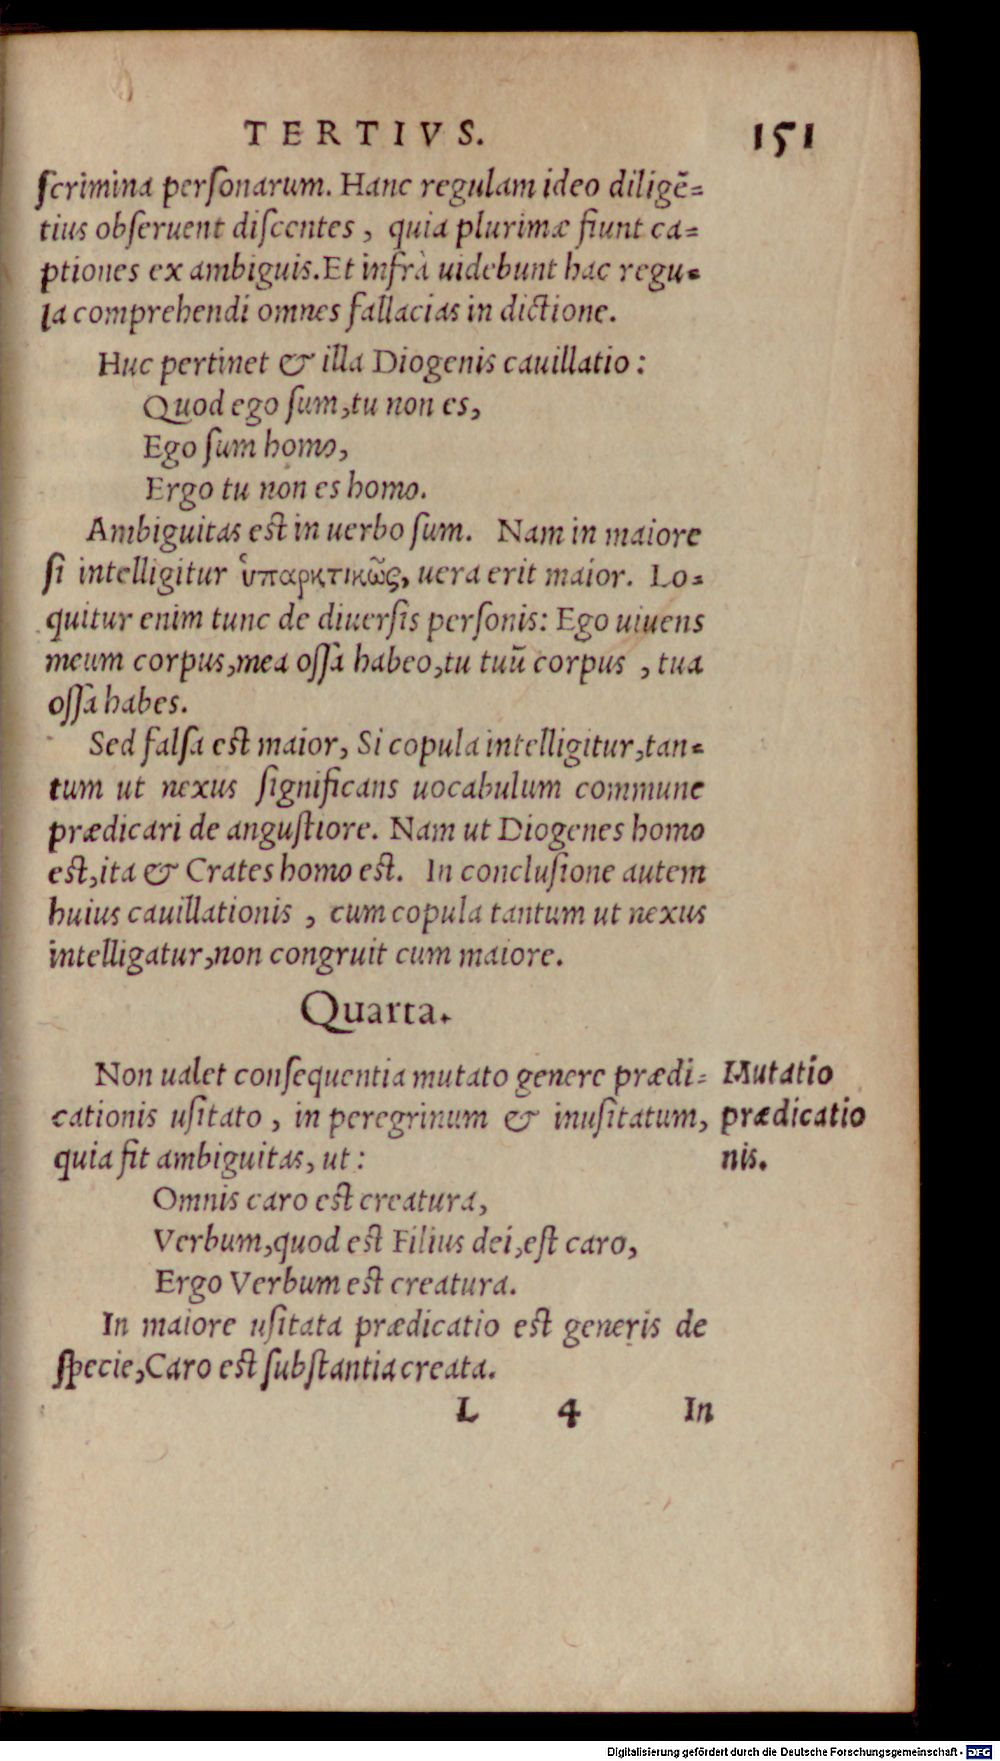 TERTIVS. 151
ſcrimina perſonarum. Hanc regulam ideo diligẽ=
tius obſeruent diſcentes, quia plurimæ fiunt ca=
ptiones ex ambiguis. Et infrà uidebunt hac regu=
la comprehendi omnes fallacias in dictione.
Huc pertinet & illa Diogenis cauillatio:
Quod ego ſum, tu non es,
Ego ſum homo,
Ergo tu non es homo.
Ambiguitas est in uerbo ſum. Nam in maiore
ſi intelligitur ὑπαρκτικῶς, uera erit maior. Lo=
quitur enim tunc de diuerſis perſonis: Ego uiuens
meum corpus, mea oſſa habeo, tu tuũ corpus, tua
oſſa habes.
Sed falſa est maior, Si copula intelligitur, tan=
tum ut nexus ſignificans uocabulum commune
prædicari de anguſtiore. Nam ut Diogenes homo
est, ita & Crates homo est. In concluſione autem
huius cauillationis, cum copula tantum ut nexus
intelligatur, non congruit cum maiore.
Quarta.
Non ualet conſequentia mutato genere prædi= Mutatio
cationis uſitato, in peregrinum & inuſitatum, prædicatio
quia fit ambiguitas, ut: nis.
Omnis caro est creatura,
Verbum, quod est Filius dei, eſt caro,
Ergo Verbum est creatura.
In maiore uſitata prædicatio est generis de
ſpecie, Caro est ſubſtantia creata.
L 4 In
Digitalisierung gefördert durch die Deutsche Forschungsgemeinschaft - DFG